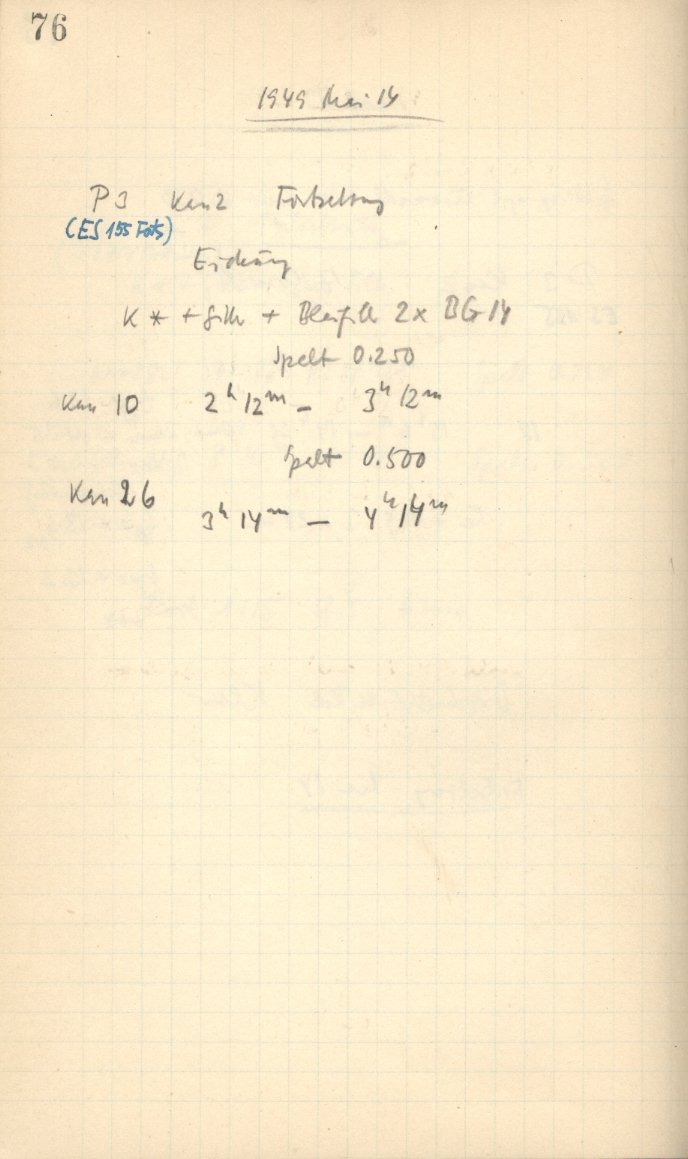 76
1949 Mai 14
P 3 Kan 2 Fortsetzung
(ES 155 Forts)
Eichung
K * + + Bleifilt 2x BG 14
Spalt 0.250
Kan 10 2h 12m – 3h 12m
Spalt 0.500
Kan 26 3h 14m – 4h 14m